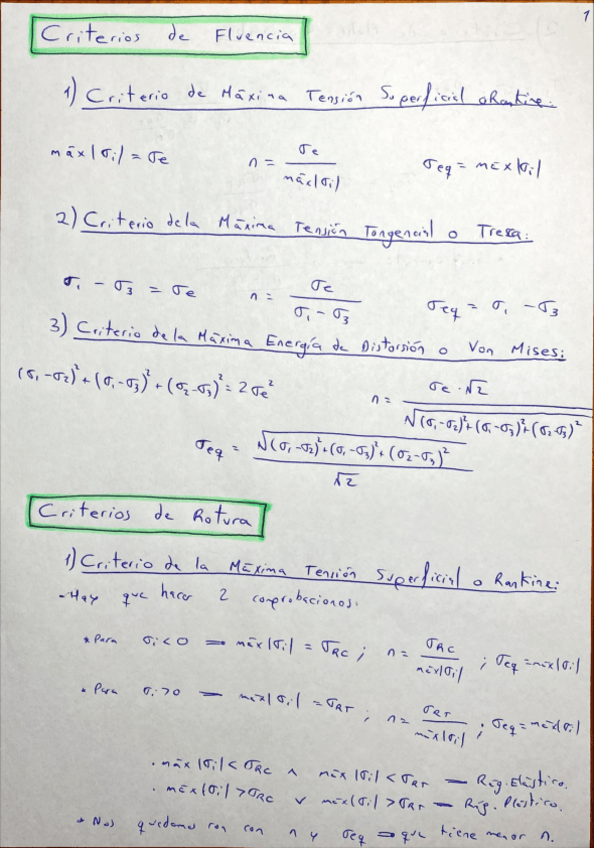 1
Criterios de Fluencia
1) Criterio de Máxima Tensión Superficial o Rankine:
máx|σi| = σe    n = σe / máx|σi|    σeq = máx|σi|
2) Criterio de la Máxima Tensión Tangencial o Tresa:
σ1 - σ3 = σe    n = σe / (σ1 - σ3)    σeq = σ1 - σ3
3) Criterio de la Máxima Energía de Distorsión o Von Mises:
(σ1-σ2)²+(σ1-σ3)²+(σ2-σ3)² = 2σe²    n = σe·√2 / √((σ1-σ2)²+(σ1-σ3)²+(σ2-σ3)²)
σeq = √((σ1-σ2)²+(σ1-σ3)²+(σ2-σ3)²) / √2
Criterios de Rotura
1) Criterio de la Máxima Tensión Superficial o Rankine:
- Hay que hacer 2 comprobaciones:
* Para σi<0 — máx|σi| = σRC ; n = σRC / máx|σi| ; σeq = máx|σi|
* Para σi>0 — máx|σi| = σRT ; n = σRT / máx|σi| ; σeq = máx|σi|
· máx|σi| < σRC ∧ máx|σi| < σRT — Rég. Elástico.
· máx|σi| > σRC ∨ máx|σi| > σRT — Rég. Plástico.
* Nos quedamos con n y σeq que tiene menor n.